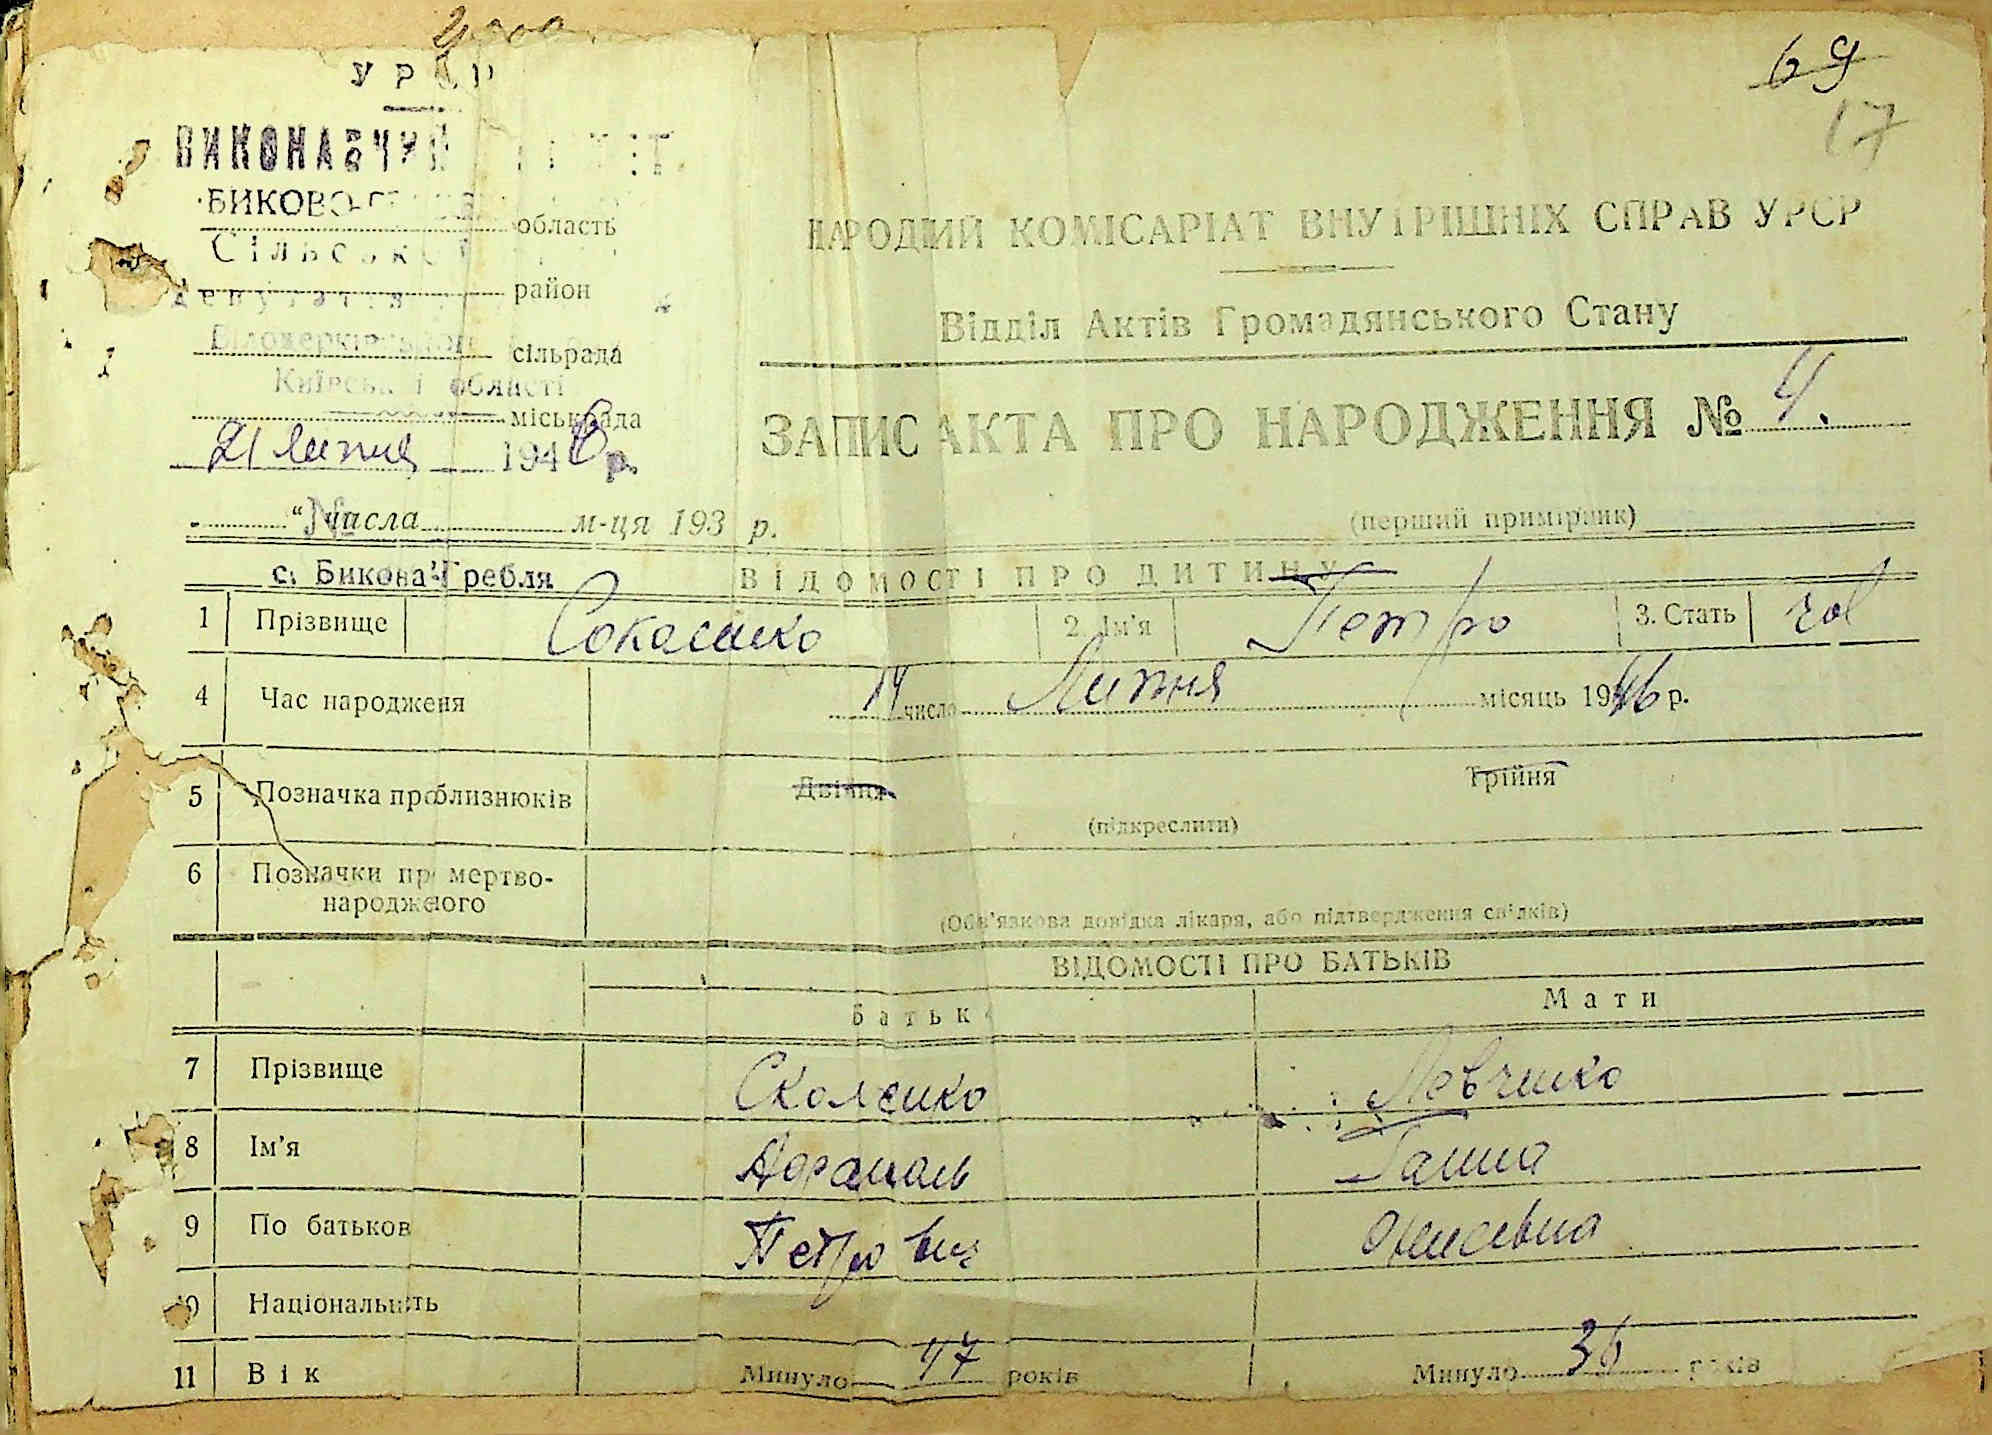 УРСР
69
17
ВИКОНАВЧИЙ
БИКОВО-
область
НАРОДНИЙ КОМІСАРІАТ ВНУТРІШНІХ СПРАВ УРСР
Сільської
район
депутатів
Відділ Актів Громадянського Стану
Білоцерківського
сільрада
Київської області
міськрада
ЗАПИС АКТА ПРО НАРОДЖЕННЯ № 4.
21 липня 1946 р.
"№ числа м-ця 193 р.
(перший примірник)
с. Бикова-Гребля
ВІДОМОСТІ ПРО ДИТИНУ
1 Прізвище 2. Ім'я Петро 3. Стать чол
4 Час народженя 14 число Липня місяць 1946 р.
5 Позначка про близнюків Двійня Трійня
(підкреслити)
6 Позначки про мертво-
народженого
(Обв'язкова довідка лікаря, або підтвердження свідків)
ВІДОМОСТІ ПРО БАТЬКІВ
Батько Мати
7 Прізвище Левченко
8 Ім'я Ганна
9 По батьков Петрович
10 Національність
11 Вік Минуло 47 років Минуло 36 років